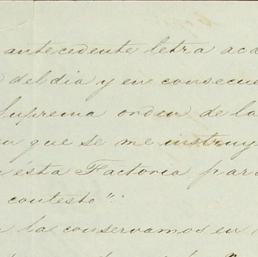 antecedente letra aca
del dia y en consecue
Suprema orden de la
que se me instruy
ésta Factoria para
conteste"
la conservamos en